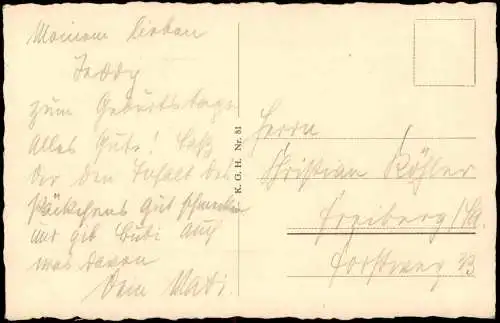 Meinem lieben
Teddy
zum Geburtstage
Alles Gute! Laß
Dir den Inhalt des
Päckchens gut schmecken
und gib Bubi auch
was davon
Dein Vati.
K. G. H. Nr. 51
Herrn
Christian Köhler
Freiberg/Sa.
Forstweg